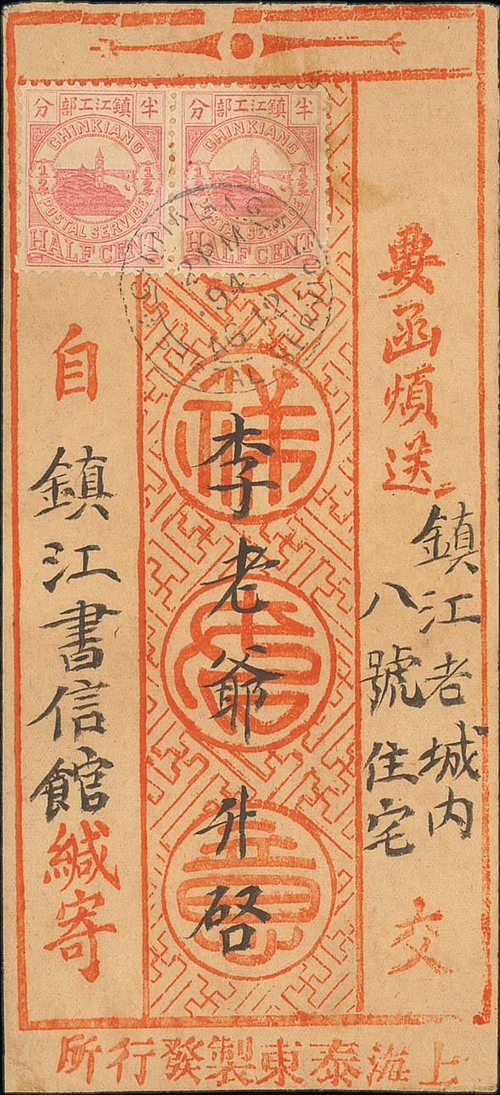 鎮江工部
半 分
CHINKIANG
1/2 1/2
POSTAL SERVICE
HALF CENT
鎮江工部
半 分
CHINKIANG
1/2 1/2
POSTAL SERVICE
HALF CENT
CHINKIANG
2 PM
.94
AG 12
要函煩送
鎮江老城内
八號住宅
交
李老爺 升啓
自
鎮江書信館
緘寄
上海泰東製發行所